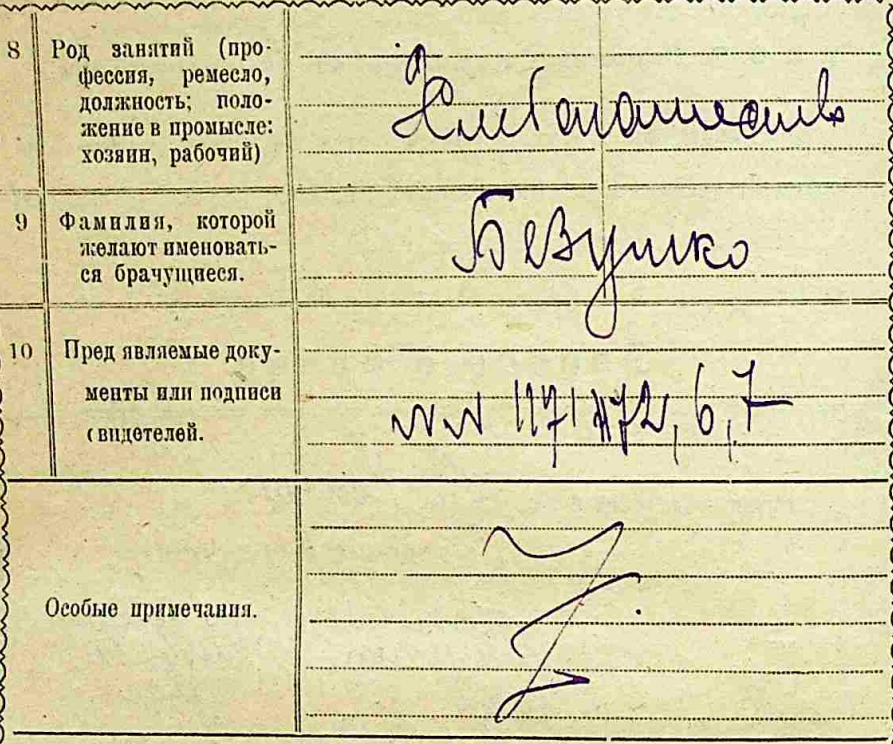 8 Род занятий (про-
фессия, ремесло,
должность; поло-
жение в промысле:
хозяин, рабочий)
Хлебопашество
9 Фамилия, которой
желают именовать-
ся брачущиеся.
Безушко
10 Пред'являемые доку-
менты или подписи
свидетелей.
NN 1171 1172, 6, 7
Особые примечания.